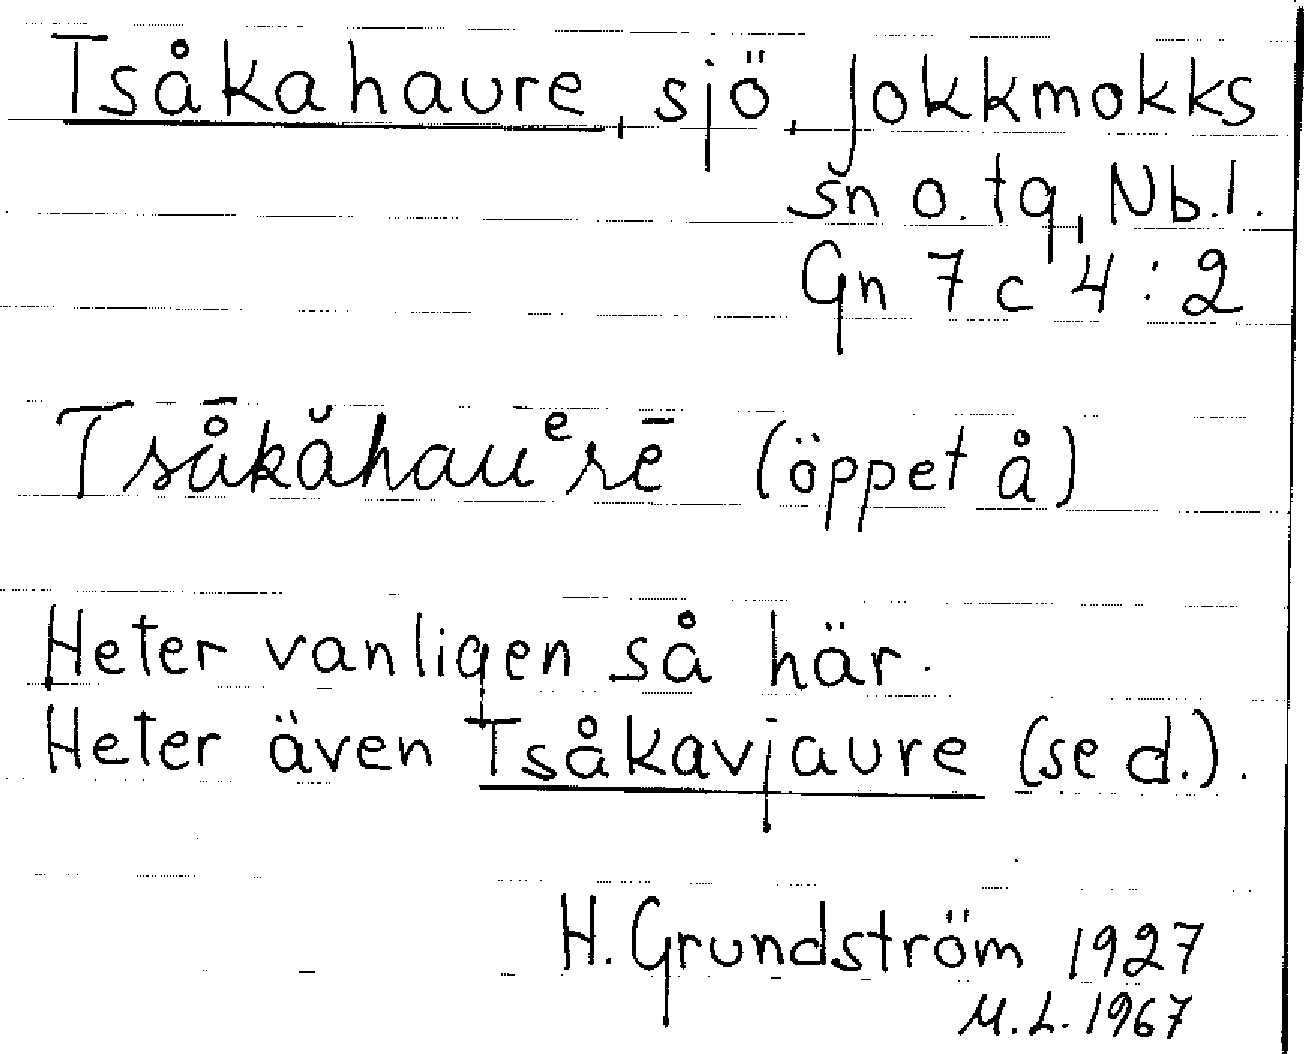 Tsåkahaure, sjö, Jokkmokks
sn o. tg, Nb.l.
Gn 7 c 4 : 2
Tså̄kå̆hauᵉrē (öppet å)
Heter vanligen så här.
Heter även Tsåkavjaure (se d.).
H. Grundström 1927
M.L. 1967